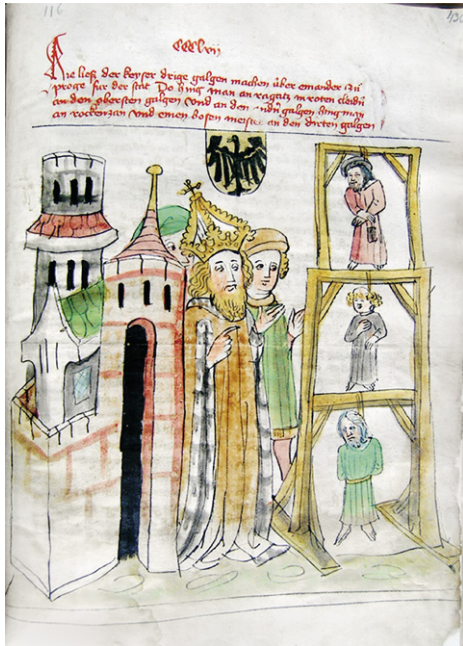 116
436
Ccclvij
Hie ließ der keyser drige galgen machen über einander zü
proge für der stat Do hing man an ragatz in roten cleidn
an den obersten galgen vnd an den galgen hing man
an rockenzan vnd einen bosen meister an den dirten galgen